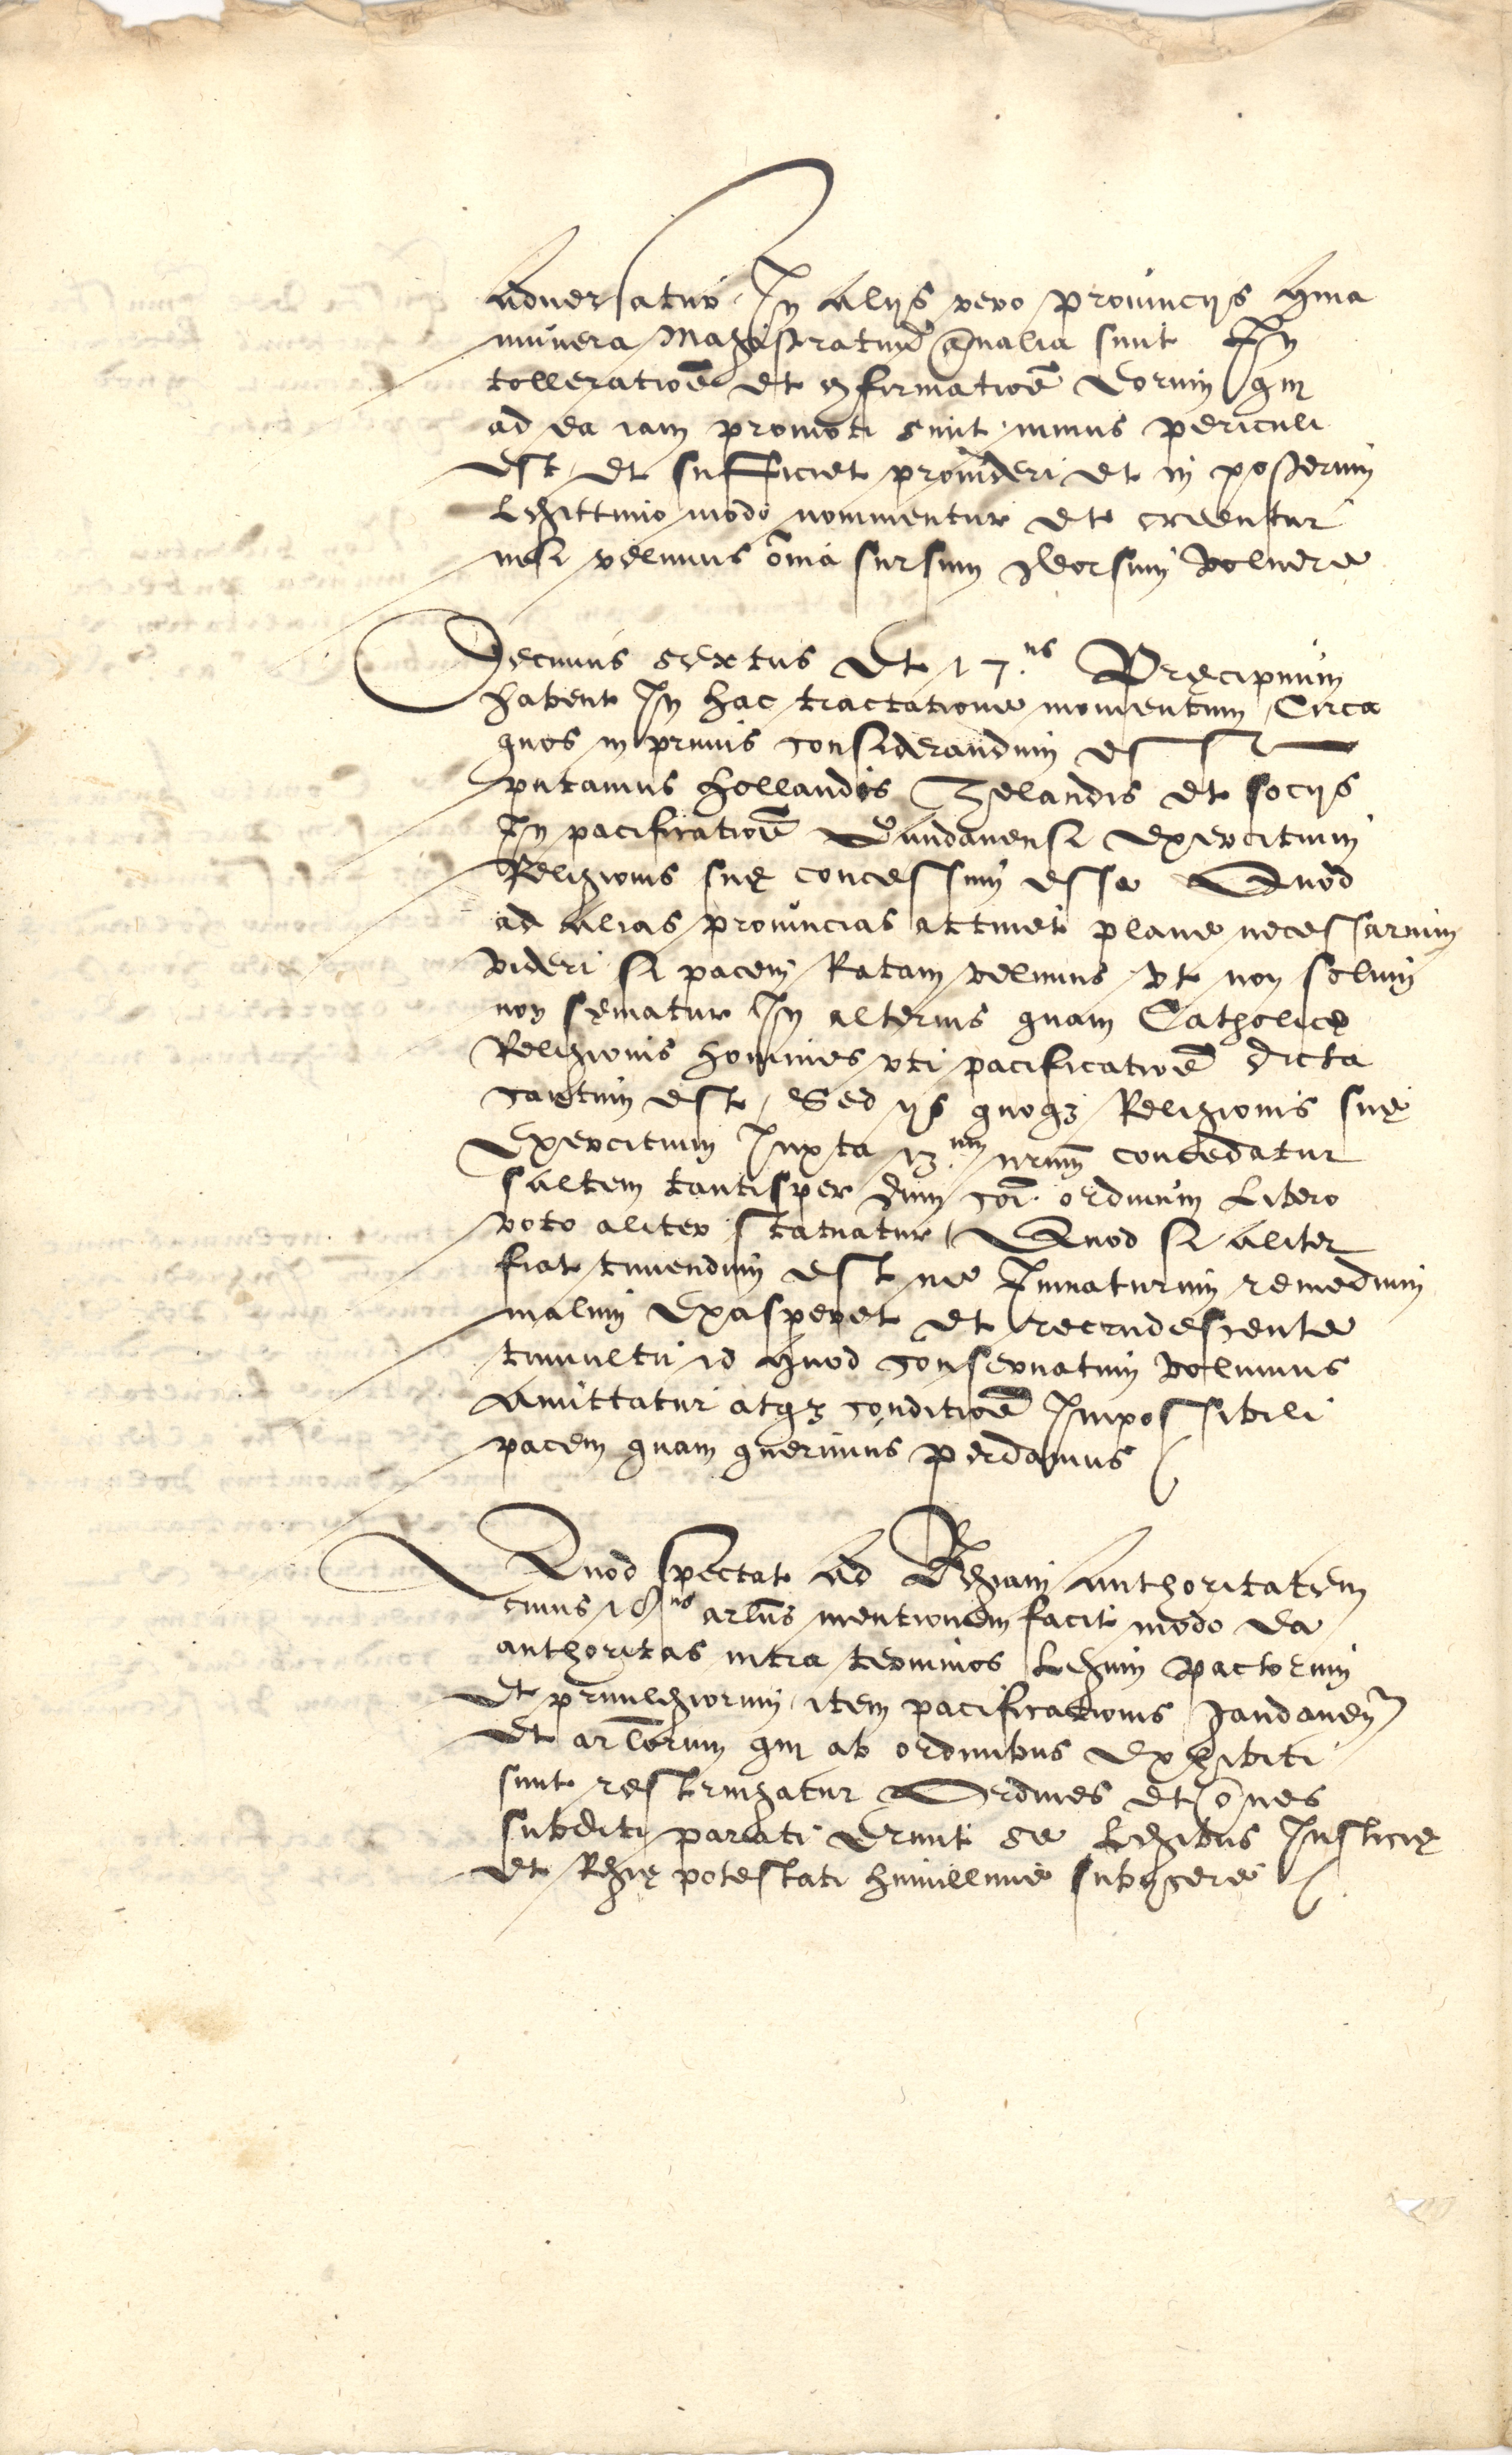 aduersatur, In alijs vero prouincijs quia
munera Magistratuũ ãnalia sunt In
tolleratiõe et cõfirmatiõe eorum qui
ad ea iam promoti sunt minus periculi
est, et sufficiet prouideri et in posterum
Legittimo modo nominentur et creentur
nisi velimus õmia sursum deorsum voluere
Decimus sextus et 17.us Precipuum
habent In hac tractatione momentum, Circa
quos in primis considerandum est
putamus Hollandis Zelandis et socijs
In pacificatiõe Gandauensi exercitium
Religionis suę concessum esse Quod
ad alias prouincias attinet plane necessarium
videri si pacem Ratam velimus vt non solum
non seuiatur In alterius quam Catholicę
Religionis homines vti pacificatiõe dicta
cautum est, Sed ijs quoqꝫ Religionis suę
Exercitium Iuxta 13.um nrum̃ concedatur
saltem tantisper dum coĩ ordinum Libero
voto aliter statuatur Quod si aliter
fiat timendum est ne Immaturum remedium
malum Exasperet et recrudescente
tumultu id quod conseruatum volumus
Amittatur atqꝫ conditiõe Impossibili
pacem quam querimus perdamus
Quod spectat ad Regiam authoritatem
cuius 18us arlus̃ mentionem facit modo ea
authoritas intra terminos Legum pactorum
et priuilegiorum, item pacificationis gandauen
et arlõrum qui ab ordinibus exhibiti
sunt restringatur Ordines et õnes
subditi parati erunt se Legibus Iusticię
et Regię potestati humillime subijcere